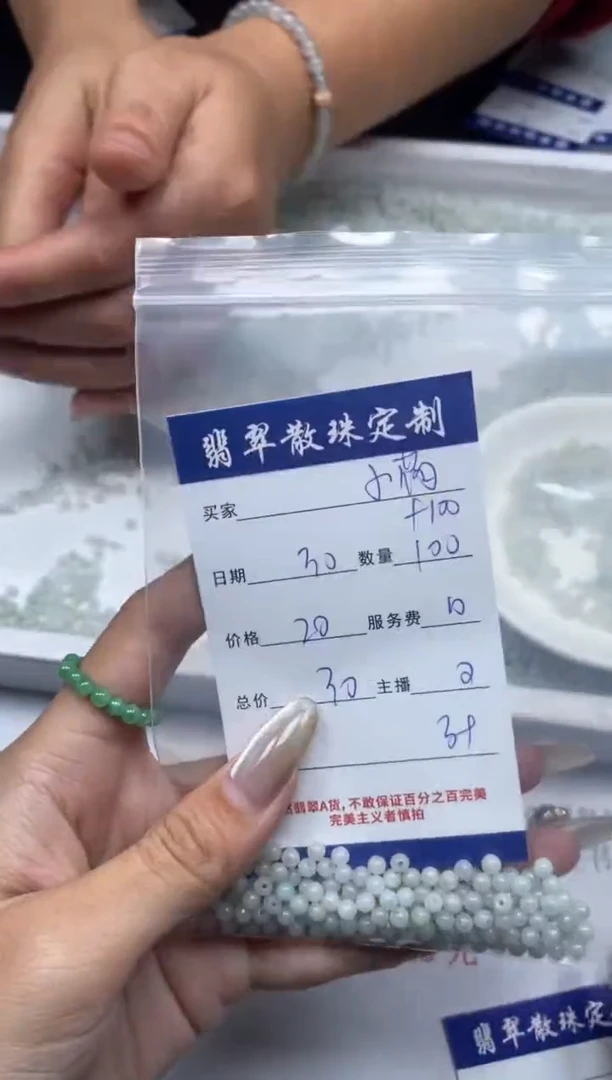 翡翠散珠定制
买家 小满
+100
日期 30 数量 100
价格 20 服务费 10
总价 30 主播 2
翡翠A货,不敢保证百分之百完美
完美主义者慎拍
元
翡翠散珠定